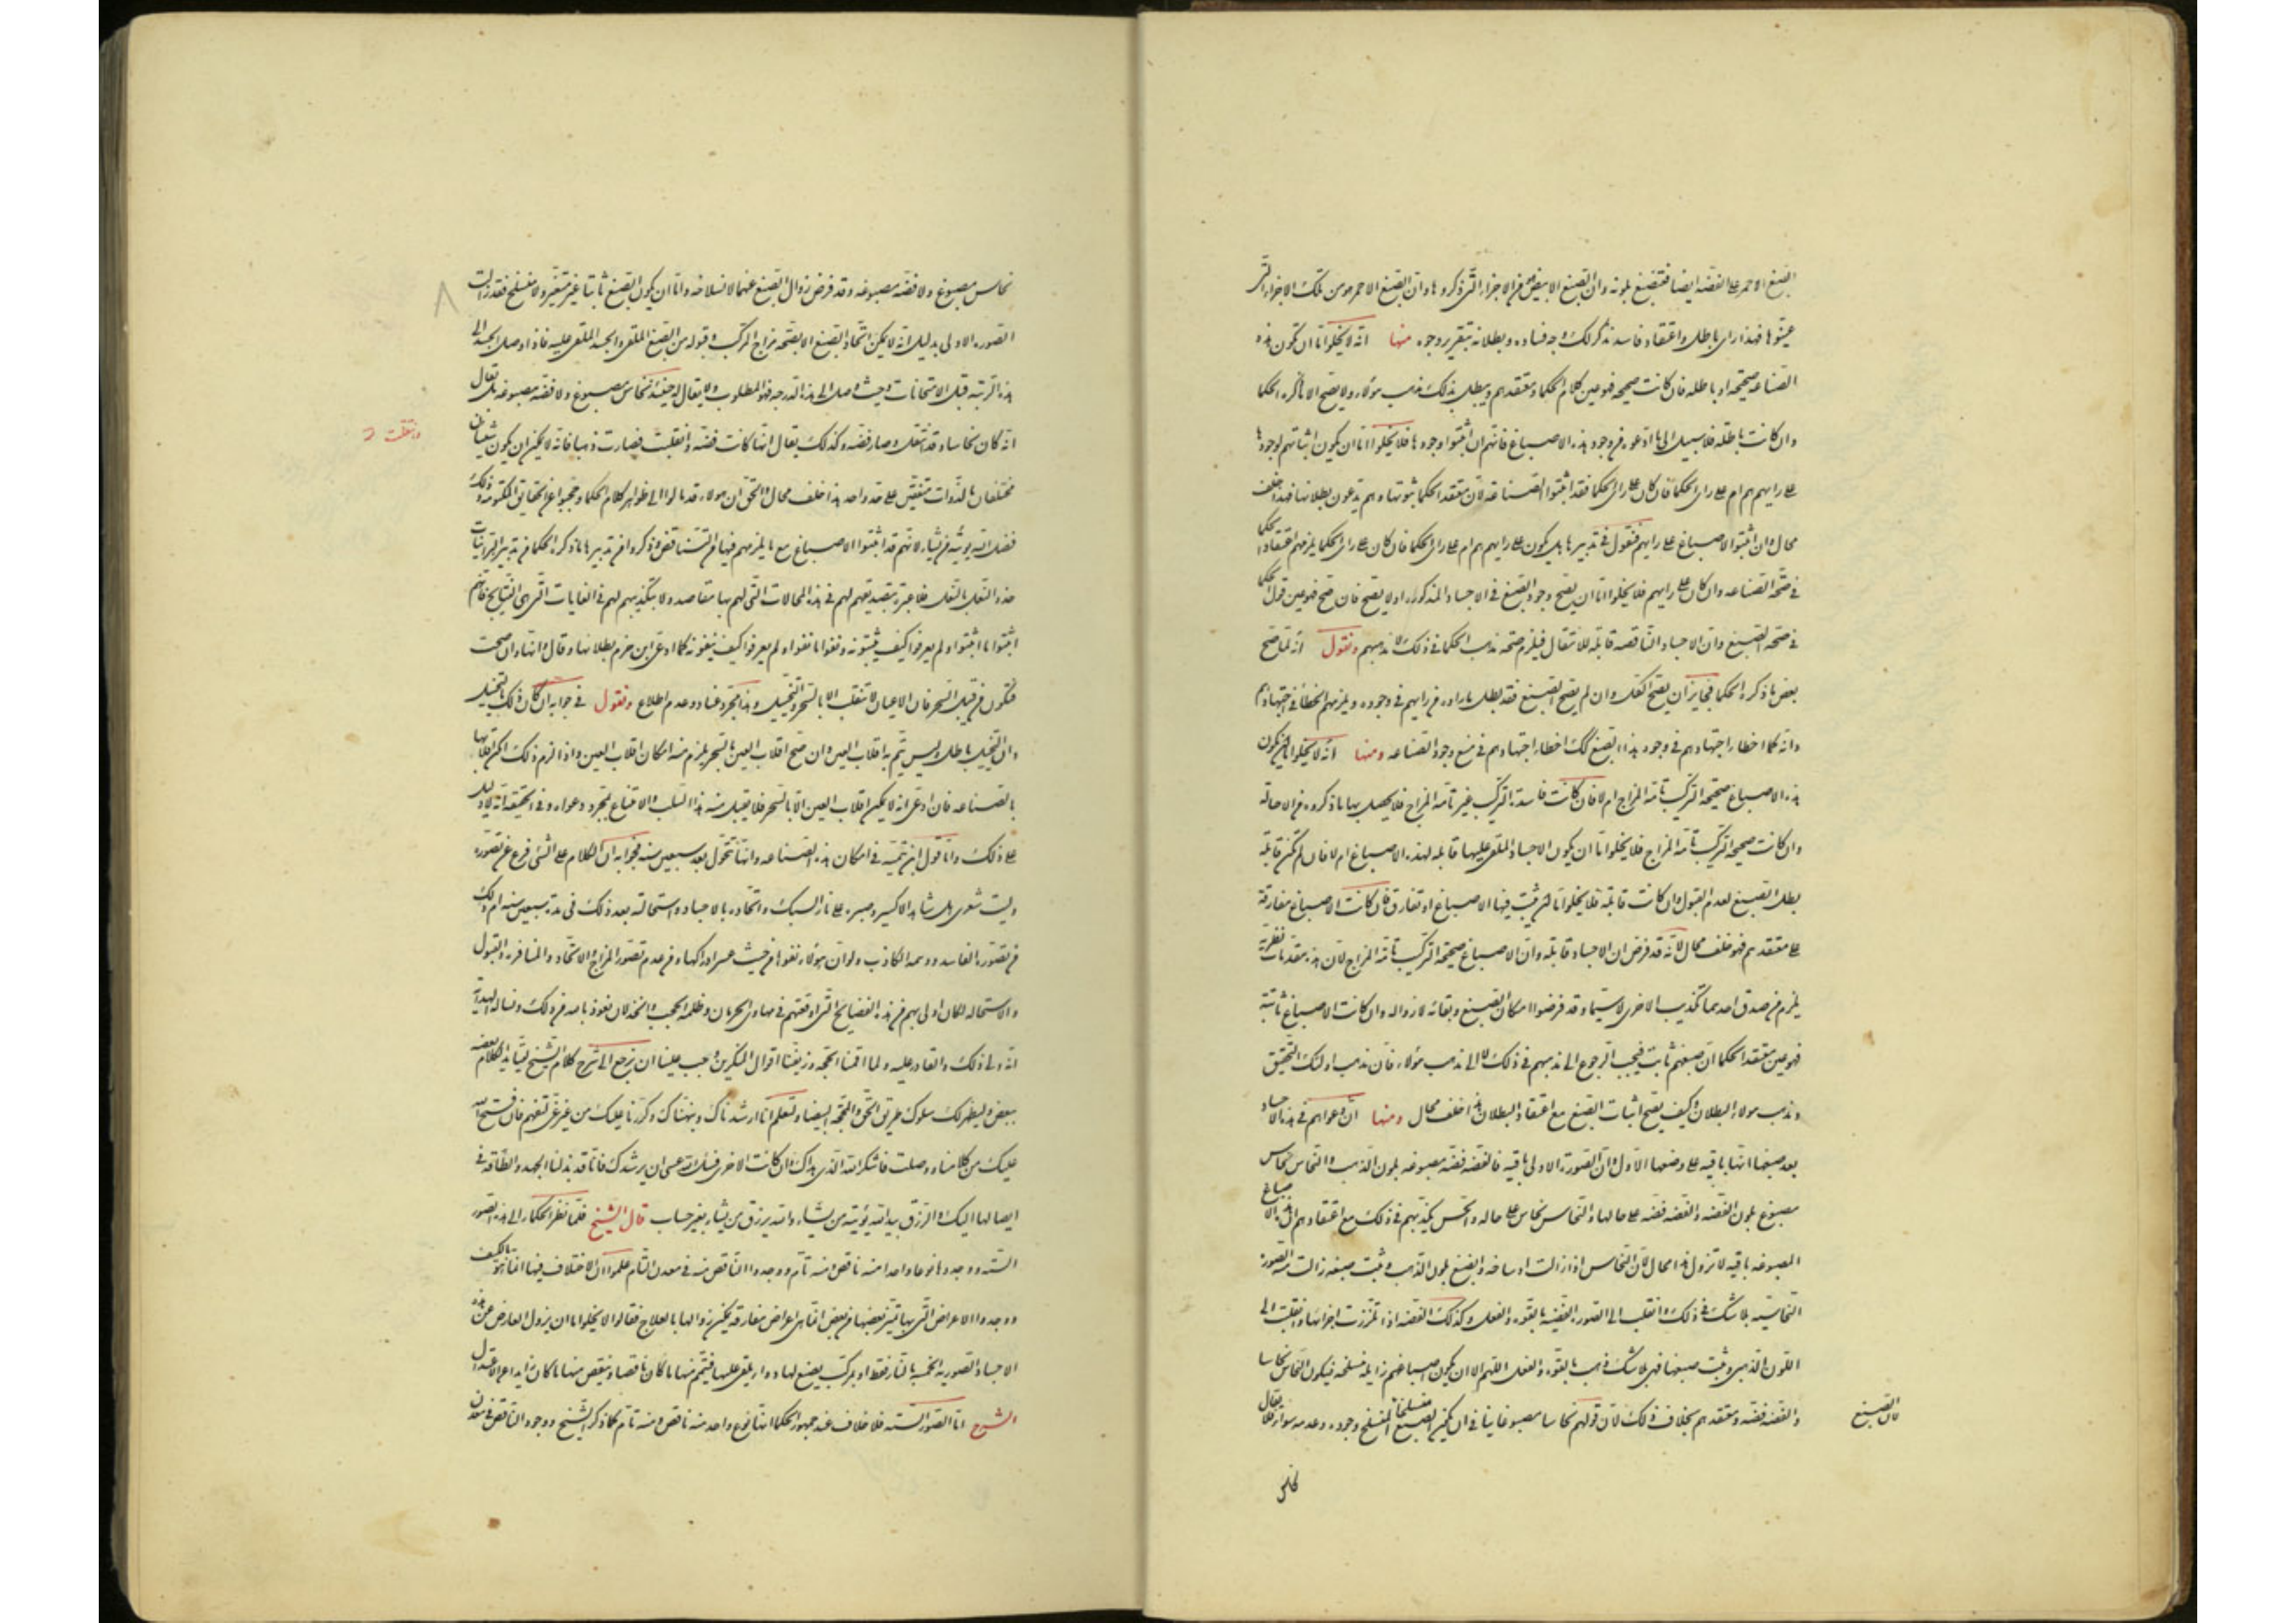 الصبغ الاحمر على الفضه ايضا فتنصبغ بلونه وان الصبغ الابيض من الاجزاء التى ذكروها وان الصبغ الاحمر هو من تلك الاجزاء التى
عينوها فهذا راى باطل واعتقاد فاسد نذكر لك وجه فساده وبطلانه بتقرير وجوه منها انه لا يخلوا اما ان تكون هذه
الصناعه صحيحه او باطله فان كانت صحيحه فهو عين كلام الحكما ومعتقدهم ويبطل بذلك مذهب هؤلاء ولا يصح الا ما ذكره الحكما
وان كانت باطله فلا سبيل الى ما ادعوه من وجود هذه الاصباغ فانهم ان اثبتوا وجودها فلا يخلوا اما ان يكون اثباتهم لوجودها
على رايهم هم ام على راى الحكما فان كان على راى الحكما فقد اثبتوا الصناعه لان معتقد الحكما ثبوتها وهم يدعون بطلانها فهذا خلف
محال وان اثبتوا الاصباغ على رايهم فنقول فى تدبيرها هل يكون على رايهم هم ام على راى الحكما فان كان على راى الحكما يلزمهم اعتقاد الحكما
فى صحة الصناعه وان كان على رايهم فلا يخلوا اما ان يصح وجود الصبغ فى الاجساد المذكوره او لا يصح فان صح فهو عين قول الحكما
فى صحة الصبغ وان الاجساد الناقصه قابله للانتقال فيلزم صحة مذهب الحكما فى ذلك لا مذهبهم ونقول انه لما صح
بعض ما ذكره الحكما فجايز ان يصح الكل وان لم يصح الصبغ فقد بطل ما راوه من رايهم فى وجوده ويلزمهم الخطأ فى اجتهادهم
وانه كما اخطاء اجتهادهم فى وجود هذا الصبغ كذلك اخطاء اجتهادهم فى منع وجود الصناعه ومنها انه لا يخلوا اما ان تكون
هذه الاصباغ صحيحة التركيب تامة المزاج ام لا فان كانت فاسدة التركيب غير تامة المزاج فلا يحصل بها ما ذكروه من الاحاله
وان كانت صحيحة التركيب تامة المزاج فلا يخلوا اما ان يكون الاجساد الملقى عليها قابله لهذه الاصباغ ام لا فان لم تكن قابلة
بطل الصبغ لعدم القبول وان كانت قابلة فلا يخلوا اما ان تثبت فيها الاصباغ او تفارق فان كانت الاصباغ مفارقة
على معتقدهم فهو خلف محال لانه قد فرض ان الاجساد قابله وان الاصباغ صحيحة التركيب تامة المزاج لان هذه مقدمات نظرية
يلزم من صدق احدهما تكذيب الاخرى لا سيما وقد فرضوا امكان الصبغ وبقائه لا زواله وان كانت الاصباغ ثابتة
فهو عين معتقد الحكما ان صبغهم ثابت فيجب الرجوع الى مذهبهم فى ذلك لا الى مذهب هؤلاء فان مذهب اولئك التحقيق
ومذهب هولاء البطلان وكيف يصح اثبات الصبغ مع اعتقاد البطلان هذا خلف محال ومنها ان دعواهم فى هذه الاجساد
بعد صبغها انها باقيه على وضعها الاول وان الصورة الاولى باقيه فالفضه فضه مصبوغه بلون الذهب والنحاس نحاس
مصبوغ بلون الفضه والفضه فضه على حالها والنحاس نحاس على حاله والحس يكذبهم فى ذلك مع اعتقادهم ان هذه الاصباغ
المصبوغه باقيه لا تزول هذا محال لان النحاس اذا زالت اوساخه وانصبغ بلون الذهب وثبت صبغه زالت منه الصورة
النحاسيه بلا شك فى ذلك وانقلب الى الصورة الفضيه بالقوه والفعل وكذلك الفضه اذا تلززت اجزائها وانقلبت الى
اللون الذهبى وثبت صبغها فهى بلا شك ذهب بالقوه والفعل اللهم الا ان يكون اصباغهم زايله منسلخه فيكون النحاس نحاسا
والفضه فضه ومعتقدهم بخلاف ذلك لان قولهم نحاسا مصبوغا ينافى ان يكون الصبغ منسلخا لان الصبغ المنسلخ وجوده وعدمه سواء فلا يقال
لان الصبغ
نحاس
نحاس مصبوغ ولا فضه مصبوغه وقد فرض زوال الصبغ عنهما لانسلاخه واما ان يكون الصبغ ثابتا غير متغير ولا منسلخ فقد زالت
الصورة الاولى بدليل انه لا يمكن اتحاد الصبغ الا بصحة مزاج المركب وقبوله من الصبغ الملقى والجسد الملقى عليه فاذا وصل الجسد الى
هذه الرتبه قبل الامتحانات وحيث وصل الى هذه الدرجه فهو المطلوب ولا يقال له حينئذ نحاس مصبوغ ولا فضه مصبوغه بل يقال
انه كان نحاسا وقد انتقل وصار فضه وكذلك يقال انها كانت فضه وانقلبت فصارت ذهبا فانه لا يمكن ان يكون شيئان
وانتقلت
مختلفان بالذوات متفقين على حد واحد هذا خلف محال والحق ان هولاء قد مالوا الى ظواهر كلام الحكما وحجبوا عن الحقايق المكتومه وذلك
فضل الله يؤتيه من يشاء لانهم قد اثبتوا الاصباغ مع ما يلزمهم فيها من التناقض وذكروا من تدبيرها ما ذكره الحكما من تدبير البرانيات
حذو النعل بالنعل فلا عبرة بتصديقهم لهم فى هذه المحالات التى لهم بها مقاصد ولا بتكذيبهم لهم فى الغايات التى هى النتايج فانهم
اثبتوا ما اثبتوا ولم يعرفوا كيف يثبتونه ونفوا ما نفوا ولم يعرفوا كيف ينفونه كما ادعى ابن حزم بطلانها وقال انها وان صحت
فتكون من قبيل السحر فان الاعيان لا تنقلب الا بالسحر والتخييل وهذا مجرد عناد وعدم اطلاع ونقول فى جوابه ان كان ذلك بالتخييل
وان التخييل باطل وليس يتم به اقلاب العين وان صح اقلاب العين بالسحر يلزم منه امكان اقلاب العين واذا لزم ذلك امكن اقلابها
بالصناعه فان ادعى انه لا يمكن اقلاب العين الا بالسحر فلا يقبل منه هذا السلب والاقناع بمجرد دعواه وفى الحقيقه انه لا دليل
على ذلك واما قول ابن تيميه فى امكان هذه الصناعه وانها تتحول بعد سبعين سنه فجوابه ان الكلام على الشئ فرع عن تصوره
وليت شعرى هل شاهد الاكسير وصبره على نار السبك واتحاده بالاجساد واستحالته بعد ذلك فى مدة سبعين سنه ام ذلك
من تصوره الفاسد ووهمه الكاذب ولو ان هؤلاء نفوها من حيث عسر ادراكها ومن عدم تصور المزاج والاتحاد والمنافره والقبول
والاستحاله لكان اولى بهم من هذه الفضايح التى اوقعتهم فى مهاوى الحرمان وظلمة الحجب والخذلان نعوذ بالله من ذلك ونساله الهداية
انه ولى ذلك والقادر عليه ولما اقمنا الحجه وزيفنا اقوال المنكرين وجب علينا ان نرجع الى شرح كلام الشيخ ليتايد الكلام بعضه
ببعض وليظهر لك سلوك طريق الحق والحجة البيضا ولتعلم انا ارشدناك ونبهناك وكررنا عليك من غير غى لتفهم فان فتح الله
عليك من كلامنا ووصلت فاشكر الله الذى هداك وان كانت الاخرى فسل الله عسى ان يرشدك فانا قد بذلنا الجهد والطاقه فى
ايصالها اليك والرزق بيد الله يؤتيه من يشاء والله يرزق من يشاء بغير حساب قال الشيخ فلما نظر الحكماء الى هذه الصور
السته ووجدوها نوعا واحدا منه ناقص ومنه تام ووجدوا الناقص منه فى معدن التام علموا ان الاختلاف فيها انما هو بالكيف
ووجدوا الاعراض التى بها تتميز بعضها من بعض انما هى اعراض مفارقه يمكن زوالها بالعلاج فقالوا لا يخلوا اما ان يزول العارض عن هذه
الاجساد الصوريه الخمسه بالنار فقط او بمركب يصنع لها دواء يلقى عليها فيتمم منها ما كان ناقصا وينقص منها ما كان زايدا عن الاعتدال
الشرح اما الصور السته فلا خلاف عند جمهور الحكما انها نوع واحد منه ناقص ومنه تام كما ذكر الشيخ ووجود الناقص فى معدن